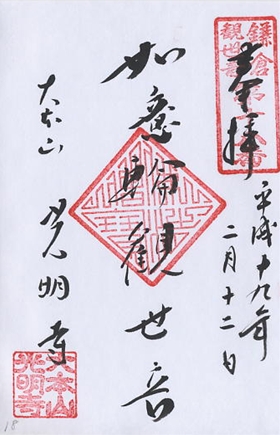 奉拝
平成十九年
二月十二日
如意輪観世音
大本山
光明寺
鎌倉
観世音
大本山
光明寺
18